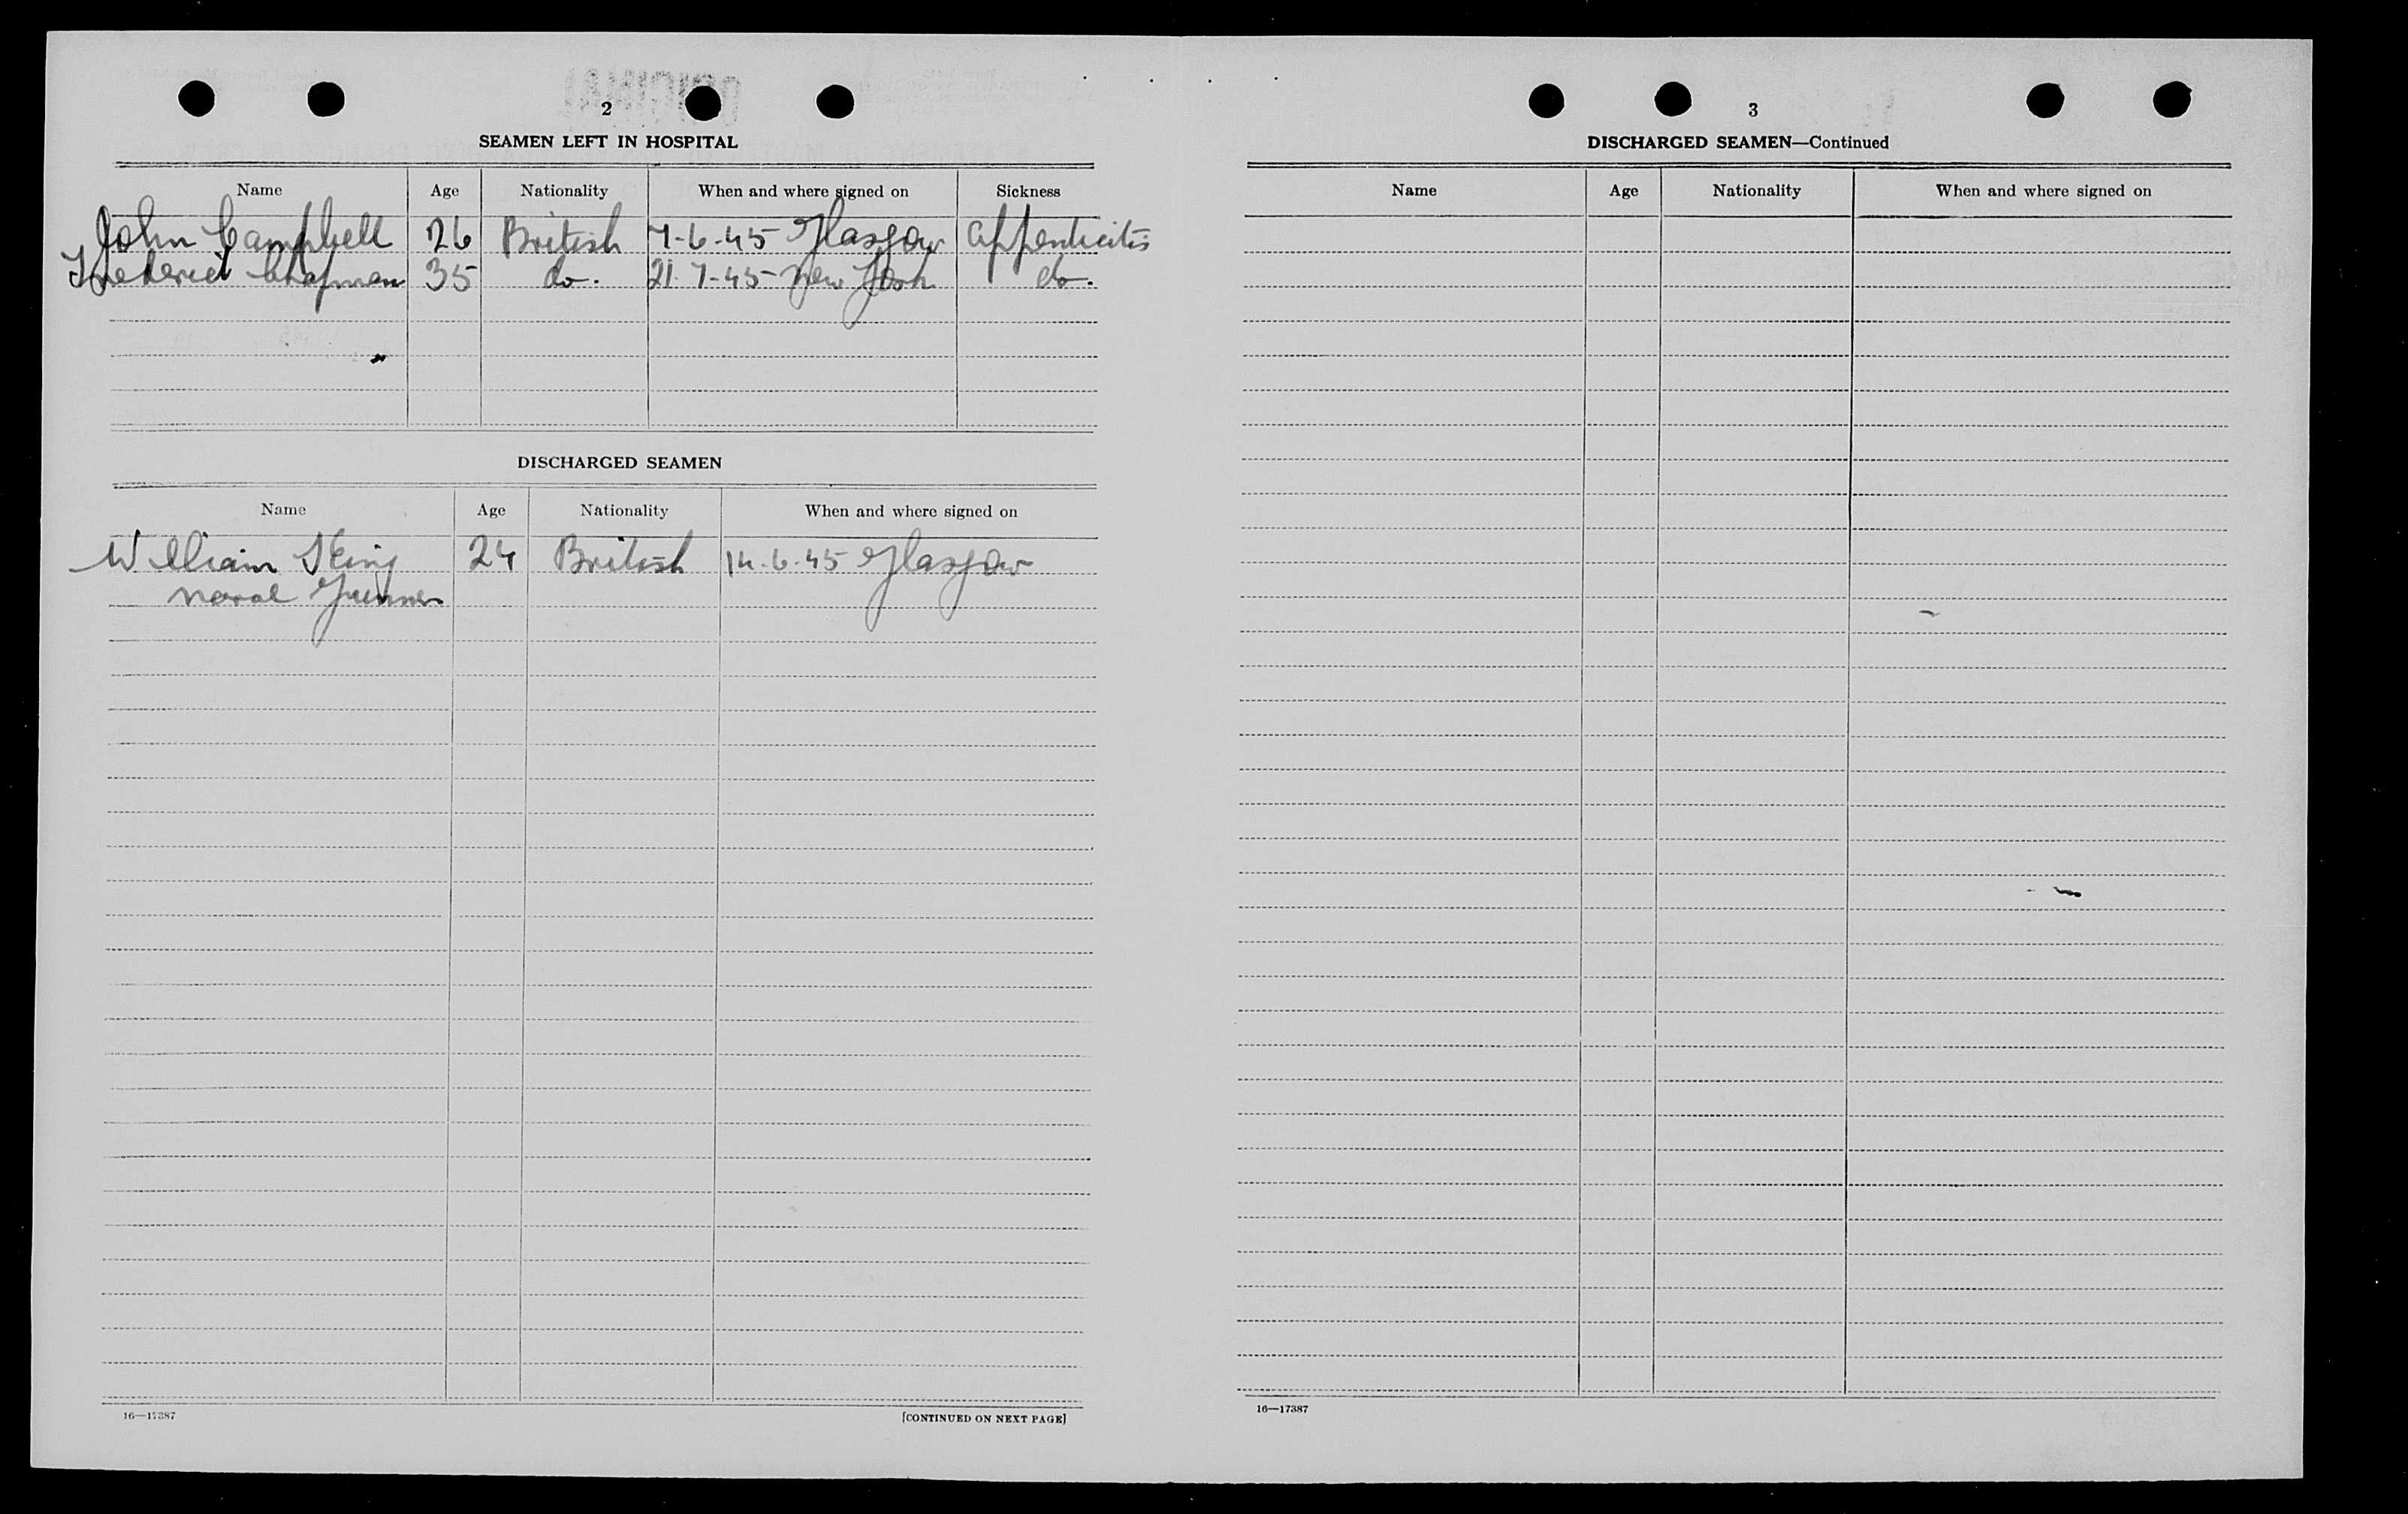 2
SEAMEN LEFT IN HOSPITAL
Name Age Nationality When and where signed on Sickness
John Campbell 26 British 7-6-45 Glasgow appendicitis
Frederick Chapman 35 do. 21-7-45 New York do.
DISCHARGED SEAMEN
Name Age Nationality When and where signed on
William King 24 British 14-6-45 Glasgow
Naval Gunner
16—17387
[CONTINUED ON NEXT PAGE]
3
DISCHARGED SEAMEN—Continued
Name Age Nationality When and where signed on
16—17387